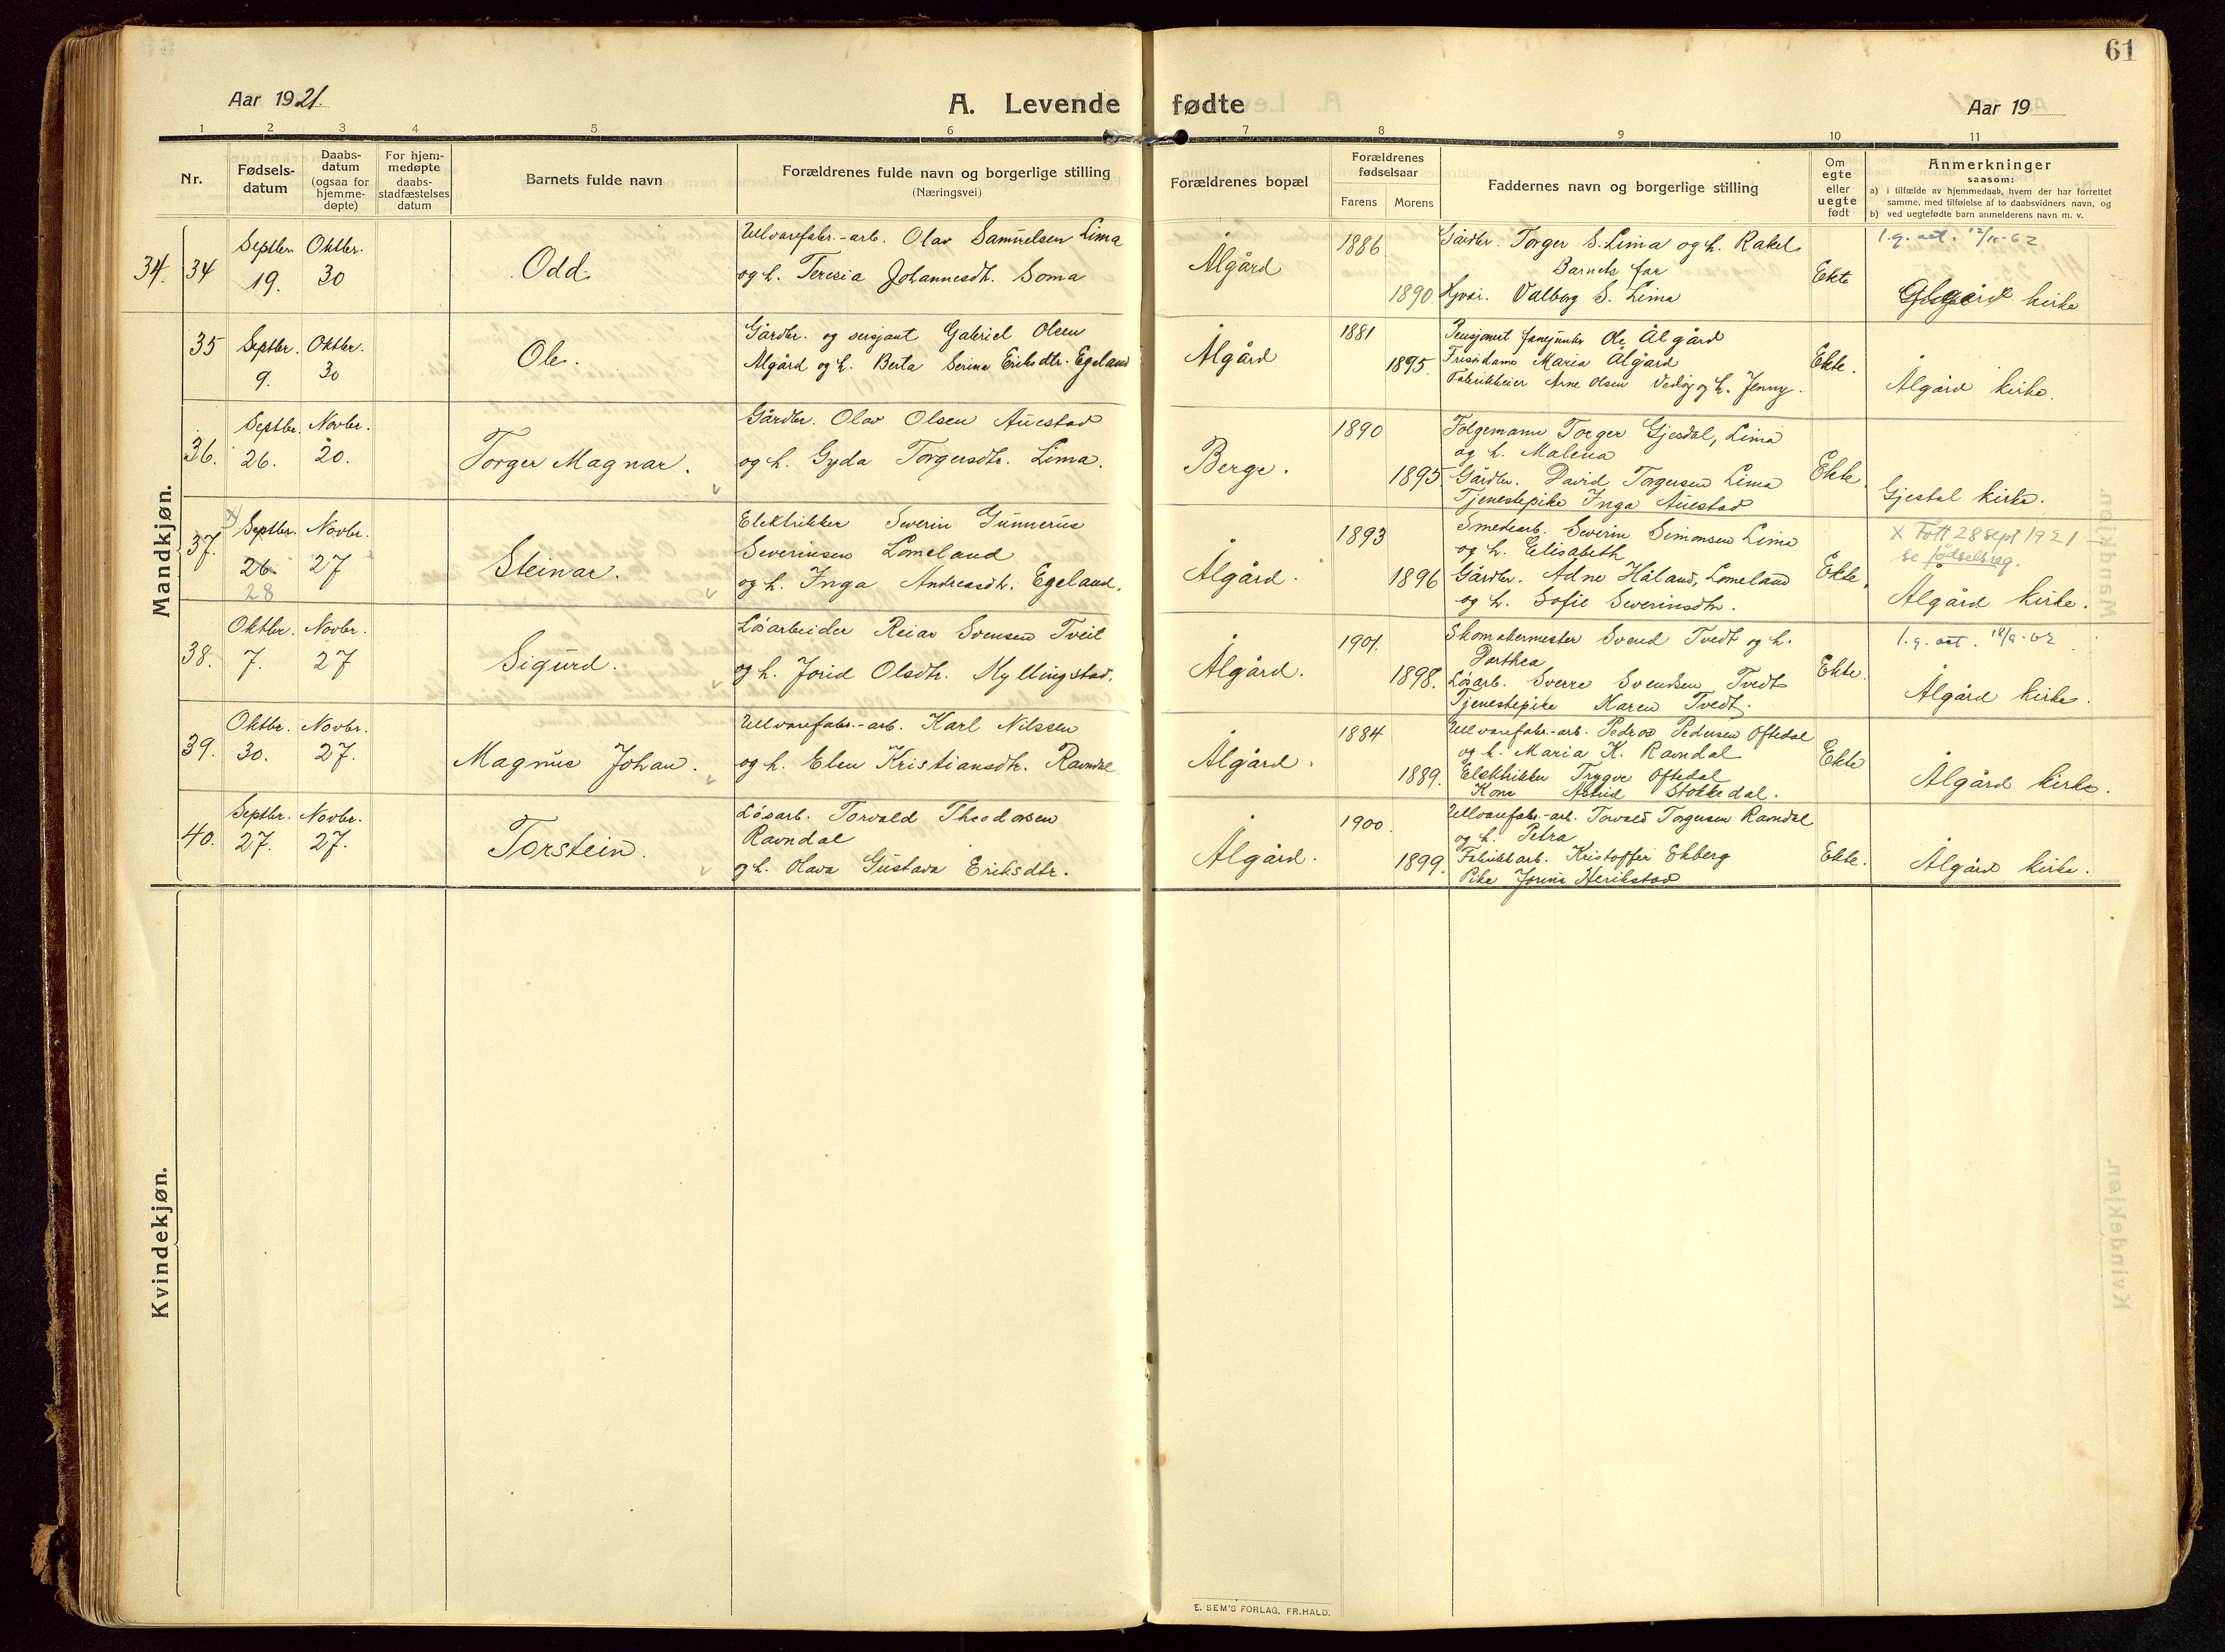 61
Aar 1921.
A. Levende fødte
Aar 19
1 2 3 4 5 6 7 8 9 10 11
Nr.
Fødsels-
datum
Daabs-
datum
(ogsaa for
hjemme-
døpte)
For hjem-
medøpte
daabs-
stadfæstelses
datum
Barnets fulde navn
Forældrenes fulde navn og borgerlige stilling
(Næringsvei)
Forældrenes bopæl
Forældrenes
fødselsaar
Farens Morens
Faddernes navn og borgerlige stilling
Om
egte
eller
uegte
født
Anmerkninger
saasom:
a) i tilfælde av hjemmedaab, hvem der har forrettet
samme, med tilføielse af to daabsvidners navn, og
b) ved uegtefødte barn anmelderens navn m. v.
Mandkjøn.
34. 34
Septbr. Oktbr.
19. 30
Odd.
Uldvarefabr.-arb. Olav Samuelsen Lima
og h. Teresia Johannesdtr. Soma
Ålgård
1886
1890.
Gårdbr. Torger S. Lima og h. Rakel
Barnets far
Valborg S. Lima
Ekte
l.g. att. 12/11-62
Ålgård kirke
35
Septbr. Oktbr.
9. 30
Ole.
Gårdbr. og sersjant Gabriel Olsen
Ålgård og h. Berta Serine Eriksdtr. Egeland
Ålgård
1881
1895.
Pensjonert fanejunker Ole Ålgård
Maria Ålgård
Fabrikkeier Arne Olsen og h. Jenny.
Ekte.
Ålgård kirke.
36.
Septbr. Novbr.
26. 20.
Torger Magnar.
Gårdbr. Olav Olsen Auestad
og h. Gyda Torgersdtr. Lima.
Berge.
1890
1895
Følgemann Torger Gjesdal, Lima
og h. Malena
Gårdbr. David Torgersen Lima
Tjenestepike Inga Auestad
Ekte
Gjestal kirke.
37.
x)
Septbr. Novbr.
26. 27
28
Steinar.
Elektrikker Severin Gunnerius
Severinsen Lomeland
og h. Inga Andreasdtr. Egeland.
Ålgård.
1893
1896
Smedearb. Severin Simonsen Lima
og h. Elisabeth
Gårdbr. Adne Håland, Lomeland
og h. Sofie Severinsdtr.
Ekte.
X Født 28 sept 1921
se fødselsreg.
Ålgård kirke.
38.
Oktbr. Novbr.
7. 27
Sigurd.
Løsarbeider Reiar Svensen Tveit
og h. Jorid Olsdtr. Kyllingstad.
Ålgård.
1901.
1898.
Skomakermester Svend Tvedt og h.
Dorthea
Løsarb. Sverre Svendsen Tvedt
Tjenestepike Karen Tvedt.
Ekte.
l.g. att. 18/9-62
Ålgård kirke.
39.
Oktbr. Novbr.
30. 27.
Magnus Johan.
Uldvarefabr.-arb. Karl Nilssen
og h. Elen Kristiansdtr. Ravndal
Ålgård.
1884
1889.
Uldvarefabr.-arb. Peder Pedersen Oftedal
og h. Maria K. Ravndal
Elektrikker Trygve Oftedal
Kone Astrid Stokkedal.
Ekte
Ålgård kirke.
40.
Septbr. Novbr.
27. 27.
Torstein.
Løsarb. Torvald Theodorsen
Ravndal
og h. Olava Gustava Eriksdtr.
Ålgård.
1900.
1899.
Uldvarefabr.-arb. Torvald Torgersen Ravndal
og h. Petra
Fabrikkarb. Kristoffer Ekberg
Pike Jorine Herikstad
Ekte.
Ålgård kirke.
Kvindekjøn.
E. SEM'S FORLAG, FR.HALD.